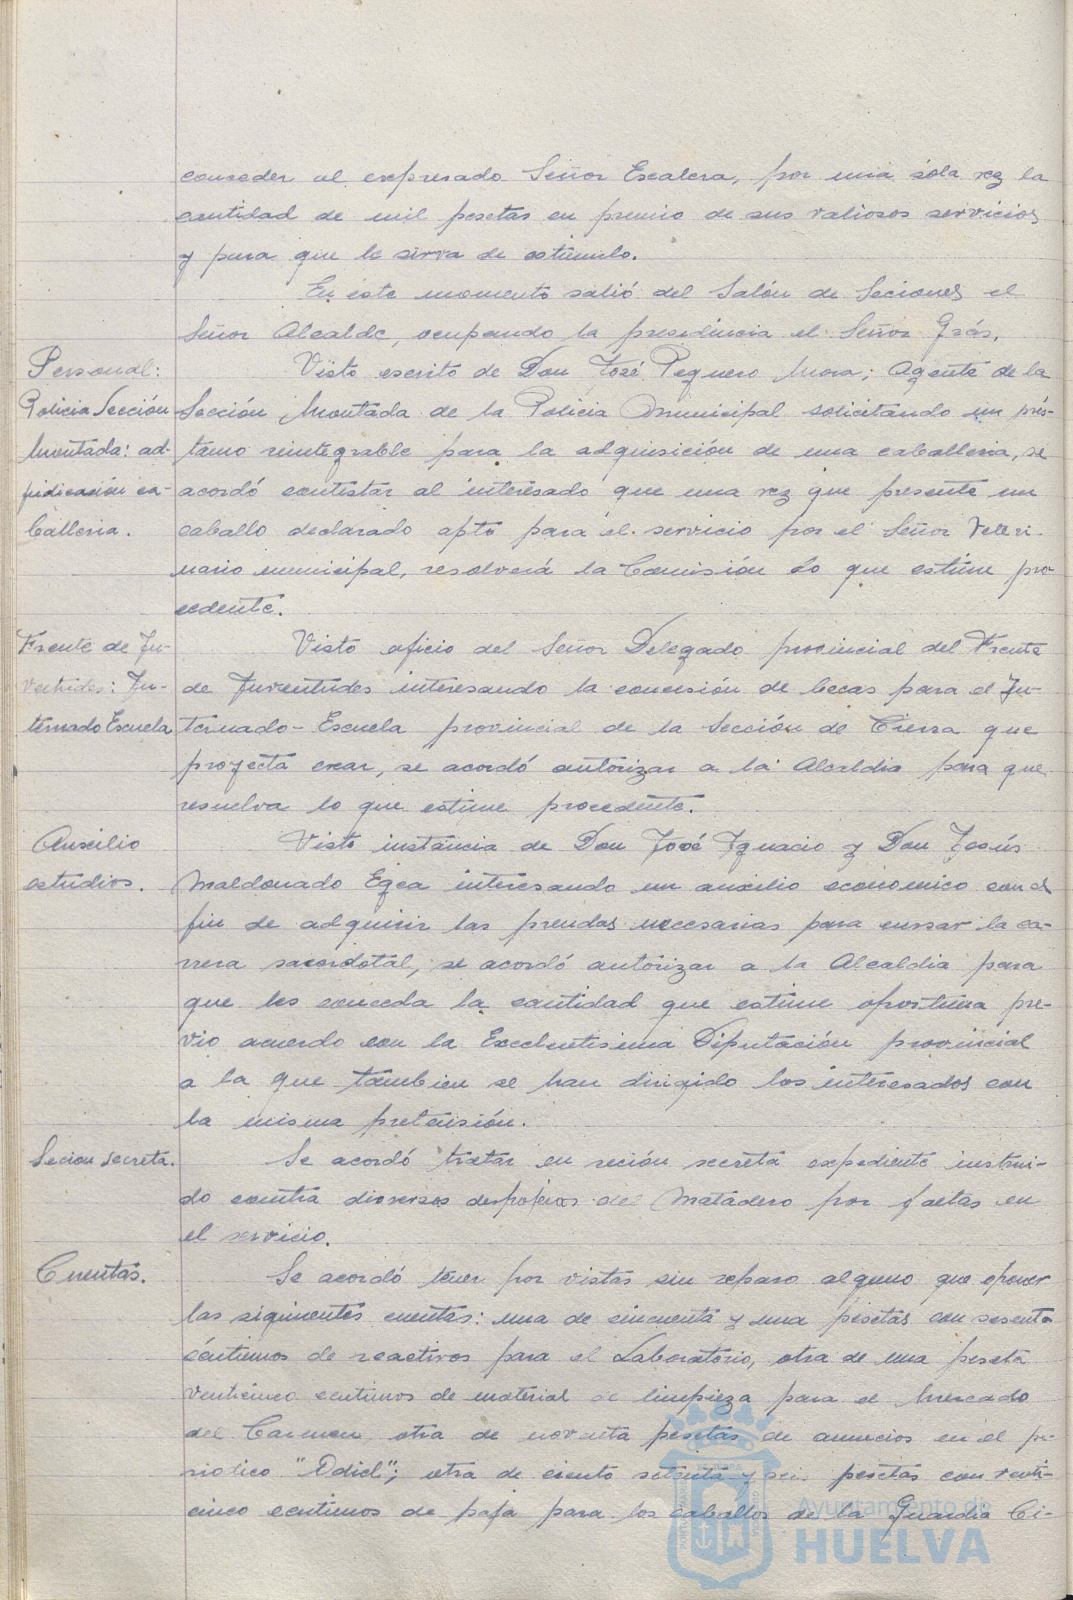 conceder al expresado Señor Escalera, por una sóla vez la
cantidad de mil pesetas en premio de sus valiosos servicios
y para que le sirva de estímulo.
En este momento salió del Salón de Seciones el
Señor Alcalde, ocupando la presidencia el Señor Grás.
Personal:
Policia Sección
Montada: ad-
judicación ca-
balleria.
Visto escrito de Don José Peguero Mora; Agente de la
Sección Montada de la Policia Municipal solicitando un prés-
tamo reintegrable para la adquisición de una caballeria, se
acordó contestar al interesado que una vez que presente un
caballo declarado apto para el servicio por el Señor Veteri-
nario municipal, resolverá la Comisión lo que estime pro-
cedente.
Frente de Ju-
ventudes: In-
ternado Escuela
Visto oficio del Señor Delegado provincial del Frente
de Juventudes interesando la concesión de becas para el In-
ternado-Escuela provincial de la Sección de Tierra que
proyecta crear, se acordó autorizar a la Alcaldia para que
resuelva lo que estime procedente.
Auxilio
estudios.
Visto instancia de Don José Ignacio y Don Jesús
Maldonado Egea interesando un auxilio economico con el
fin de adquirir las prendas necesarias para cursar la ca-
rrera sacerdotal, se acordó autorizar a la Alcaldia para
que les conceda la cantidad que estime oportuna pre-
vio acuerdo con la Excelentisima Diputación provincial
a la que tambien se han dirigido los interesados con
la misma pretensión.
Secion secreta.
Se acordó tratar en seción secreta expediente instrui-
do contra diversos despojeros del Matadero por faltas en
el servicio.
Cuentas.
Se acordó tener por vistas sin reparo alguno que oponer
las siguientes cuentas: una de cincuenta y una pesetas con sesenta
céntimos de reactivos para el Laboratorio, otra de una peseta
venticinco centimos de material de limpieza para el Mercado
del Carmen, otra de noventa pesetas de anuncios en el pe-
riodico "Odiel"; otra de ciento setenta y seis pesetas con venti-
cinco centimos de paja para los caballos de la Guardia Ci-
Ayuntamiento de
HUELVA